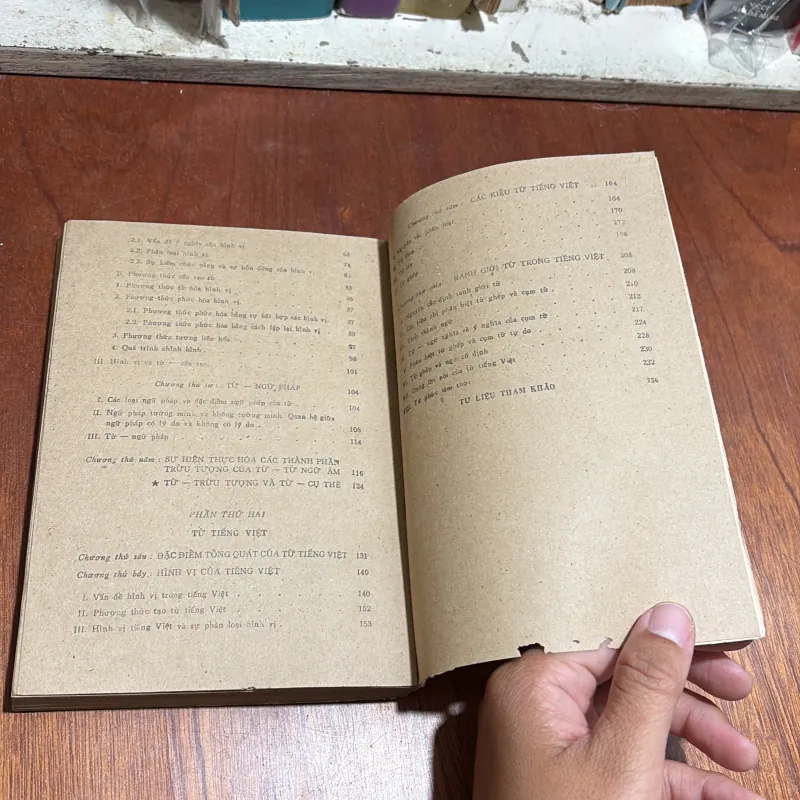 2.1. Vấn đề ý nghĩa của hình vị 68
2.2. Phân loại hình vị. 74
2.3. Sự kiêm chức năng và sự bồn động của hình vị 81
D. Phương thức cấu tạo từ. 83
1. Phương thức từ hóa hình vị 86
2. Phương thức phức hóa hình vị 87
2.1. Phương thức phức hóa bằng sự kết hợp các hình vị 87
2.2. Phương thức phức hóa bằng cách lặp lại hình vị 89
3. Phương thức tương liên hóa. 97
4. Quá trình chỉnh hình 98
III. Hình vị và từ — cấu tạo. 101
Chương thứ tư : TỪ — NGỮ PHÁP 104
I. Các loại ngữ pháp và đặc điểm ngữ pháp của từ 104
II. Ngữ pháp tường minh và không tường minh. Quan hệ giữa
ngữ pháp có lý do và không có lý do 106
III. Từ — ngữ pháp 114
Chương thứ năm : SỰ HIỆN THỰC HÓA CÁC THÀNH PHẦN
TRỪU TƯỢNG CỦA TỪ — TỪ NGỮ ÂM 116
★ TỪ — TRỪU TƯỢNG VÀ TỪ — CỤ THỂ 124
PHẦN THỨ HAI
TỪ TIẾNG VIỆT
Chương thứ sáu : ĐẶC ĐIỂM TỔNG QUÁT CỦA TỪ TIẾNG VIỆT 131
Chương thứ bảy : HÌNH VỊ CỦA TIẾNG VIỆT 140
I. Vấn đề hình vị trong tiếng Việt 140
II. Phương thức tạo từ tiếng Việt 152
III. Hình vị tiếng Việt và sự phân loại hình vị 153
Chương thứ tám : CÁC KIỂU TỪ TIẾNG VIỆT 164
tắc phân loại 164
Từ đơn 170
Từ láy 172
Từ ghép 198
thứ chín : RANH GIỚI TỪ TRONG TIẾNG VIỆT 208
I. Nguyên tắc định ranh giới từ 208
Các tiêu chí phân biệt từ ghép và cụm từ 210
Tính thành ngữ 212
Từ — ngữ nghĩa và ý nghĩa của cụm từ 217
V. Phân biệt từ ghép và cụm từ tự do 224
VI. Từ ghép và ngữ cố định 228
VII. lời nói của từ tiếng Việt 230
VIII. Từ phức lâm thời 232
TƯ LIỆU THAM KHẢO 236